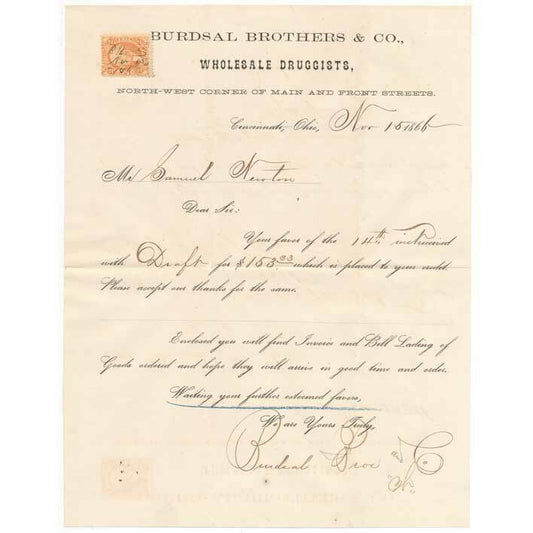 BURDSAL BROTHERS & CO.,
WHOLESALE DRUGGISTS,
NORTH-WEST CORNER OF MAIN AND FRONT STREETS.
Cincinnati, Ohio, Nov 15 1866
Mr Samuel Newton
Dear Sir:
Your favor of the 14th inst received
with Draft for $153.33 which is placed to your credit.
Please accept our thanks for the same.
Enclosed you will find Invoice and Bill Lading of
Goods ordered and hope they will arrive in good time and order.
Waiting your further esteemed favors,
We are Yours Truly,
Burdsal Bros & Co